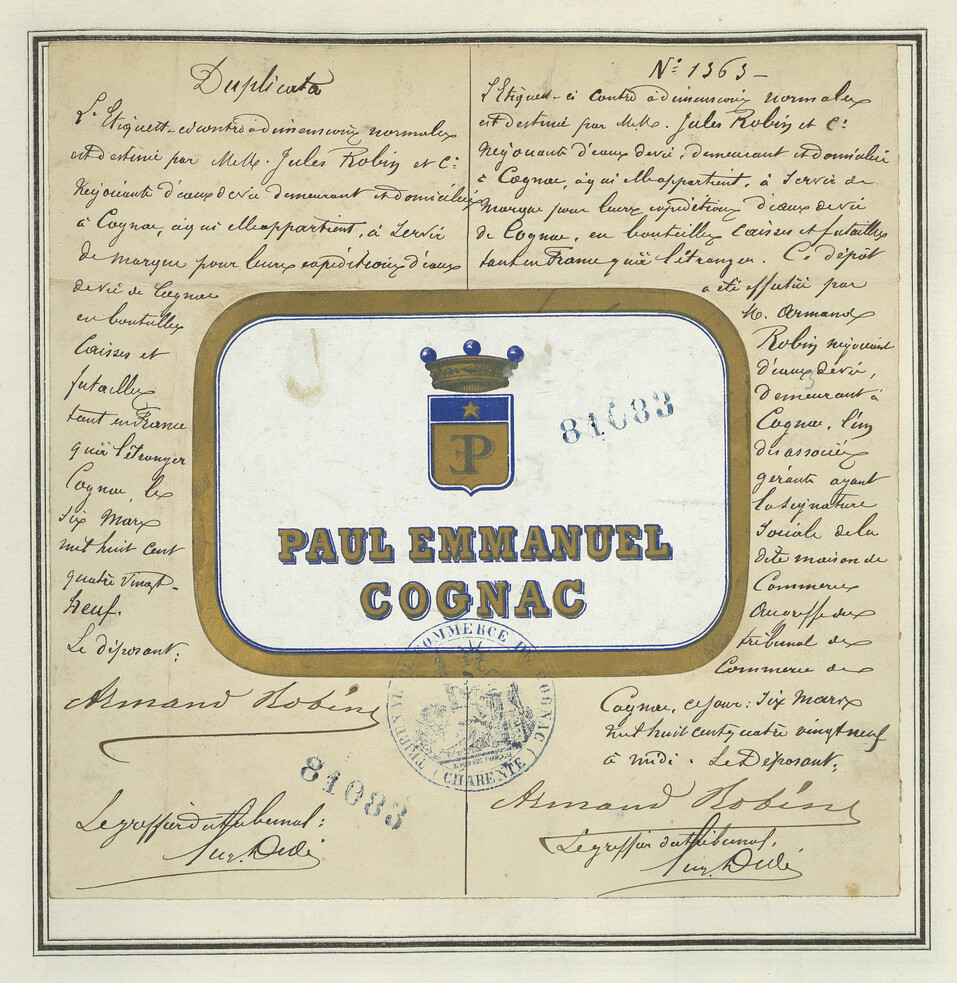 Duplicata
L'Etiquette ci contre à dimensions normales
est destiné par MM. Jules Robin et Cie
Négociants d'eaux de vie demeurant et domiciliés
à Cognac, à qui elle appartient, à Servir
de marque pour leurs expéditions d'eaux
de vie de Cognac
en bouteilles
Caisses et
futailles
tant en France
qu'à l'étranger
Cognac, le
Six Mars
mil huit cent
quatre vingt-
neuf.
Le déposant:
Armand Robin
Le greffier du tribunal:
N° 1363 -
L'Etiquette ci contre à dimensions normales
est destiné par MM. Jules Robin et Cie
Négociants d'eaux de vie, demeurant et domiciliés
à Cognac, à qui elle appartient, à Servir de
Marque pour leurs expéditions d'eaux de vie
de Cognac, en bouteilles Caisses et futailles
tant en France qu'à l'étranger. Ce dépôt
a été effectué par
M. Armand
Robin négociant
d'eaux de vie,
demeurant à
Cognac, l'un
des associés
gérants ayant
la signature
Sociale de la
dite maison de
Commerce
Au greffe du
tribunal de
Commerce de
Cognac, ce jour: Six Mars
mil huit cent quatre vingt neuf
à midi. Le Déposant:
Armand Robin
Le greffier du tribunal,
81083
EP
PAUL EMMANUEL
COGNAC
TRIBUNAL DE COMMERCE DE COGNAC
(CHARENTE)
81083